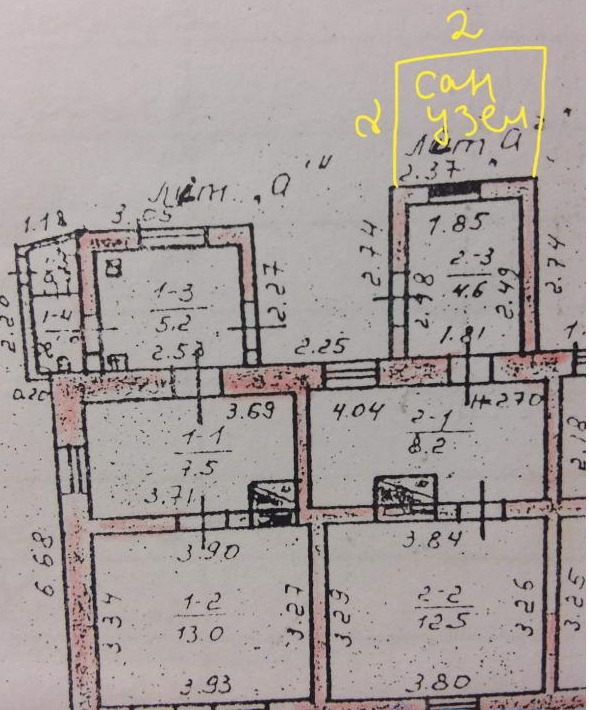 2
2
сан
узел
лит „а"
2.37
лит „а"
1.18
3.05
1.85
2.74
2-3
4.6
2.98
2.49
2.74
2.20
1-4
1-3
5.2
2.27
2.53
2.25
1.81
0.20
3.69
4.04
2-1
8.2
н-2.70
1-1
7.5
3.71
2.18
3.90
3.84
6.68
3.34
1-2
13.0
3.27
3.29
2-2
12.5
3.26
3.25
3.93
3.80